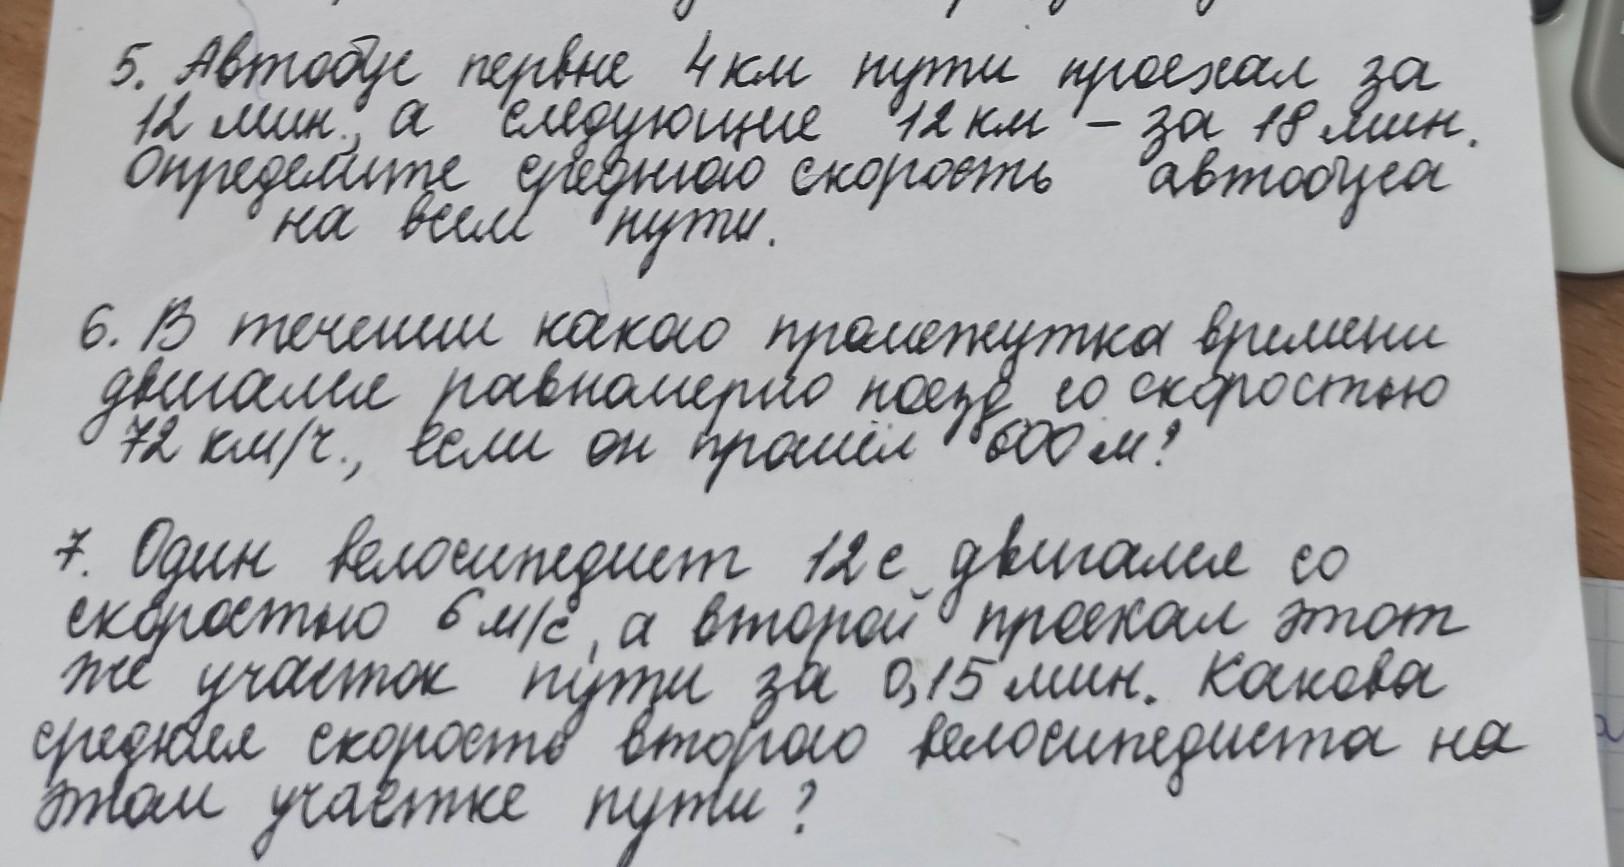 5. Автобус первые 4 км пути проехал за
12 мин., а следующие 12 км – за 18 мин.
Определите среднюю скорость автобуса
на всем пути.
6. В течении какого промежутка времени
двигался равномерно поезд со скоростью
72 км/ч., если он прошёл 600 м?
7. Один велосипедист 12 с двигался со
скоростью 6 м/с, а второй проехал этот
же участок пути за 0,15 мин. Какова
средняя скорость второго велосипедиста на
этом участке пути?